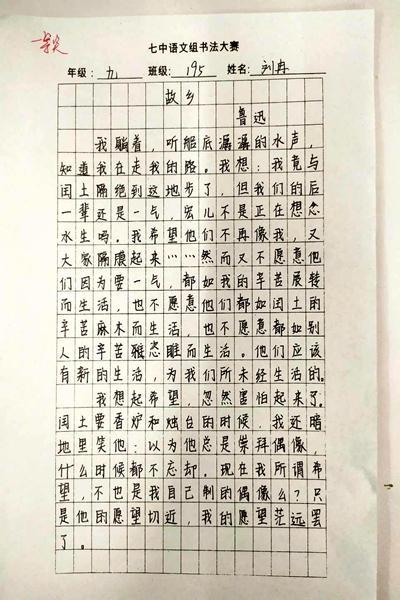 一等奖
七中语文组书法大赛
年级：九 班级：195 姓名：刘冉
故乡
鲁迅
我躺着，听船底潺潺的水声，
知道我在走我的路。我想：我竟与
闰土隔绝到这地步了，但我们的后
一辈还是一气，宏儿不是正在想念
水生吗。我希望他们不再像我，又
大家隔膜起来……然而又不愿意他
们因为要一气，都如我的辛苦展转
而生活，也不愿意他们都如闰土的
辛苦麻木而生活，也不愿意都如别
人的辛苦恣睢而生活。他们应该
有新的生活，为我们所未经生活的。
我想起希望，忽然害怕起来了。
闰土要香炉和烛台的时候，我还暗
地里笑他：以为他总是崇拜偶像，
什么时候都不忘却。现在我所谓希
望，不也是我自己制的偶像么？只
是他的愿望切近，我的愿望茫远罢
了。